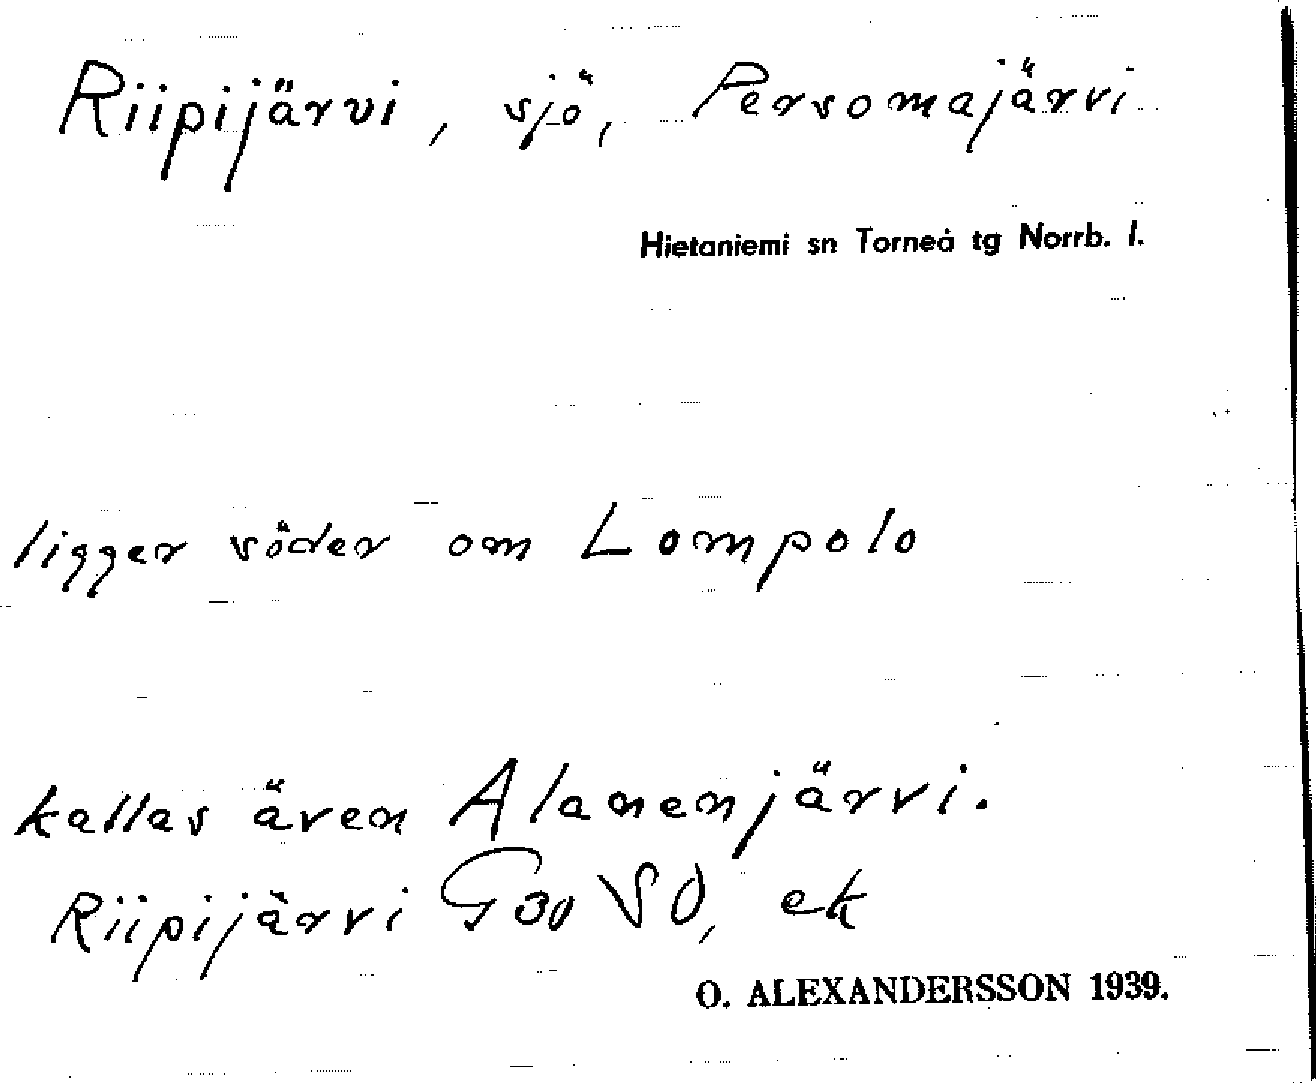 Riipijärvi, sjö, Persomajärvi
Hietaniemi sn Torneå tg Norrb. l.
ligger söder om Lompolo
kallas även Alanenjärvi.
Riipijärvi Geo SO, ek
O. ALEXANDERSSON 1939.